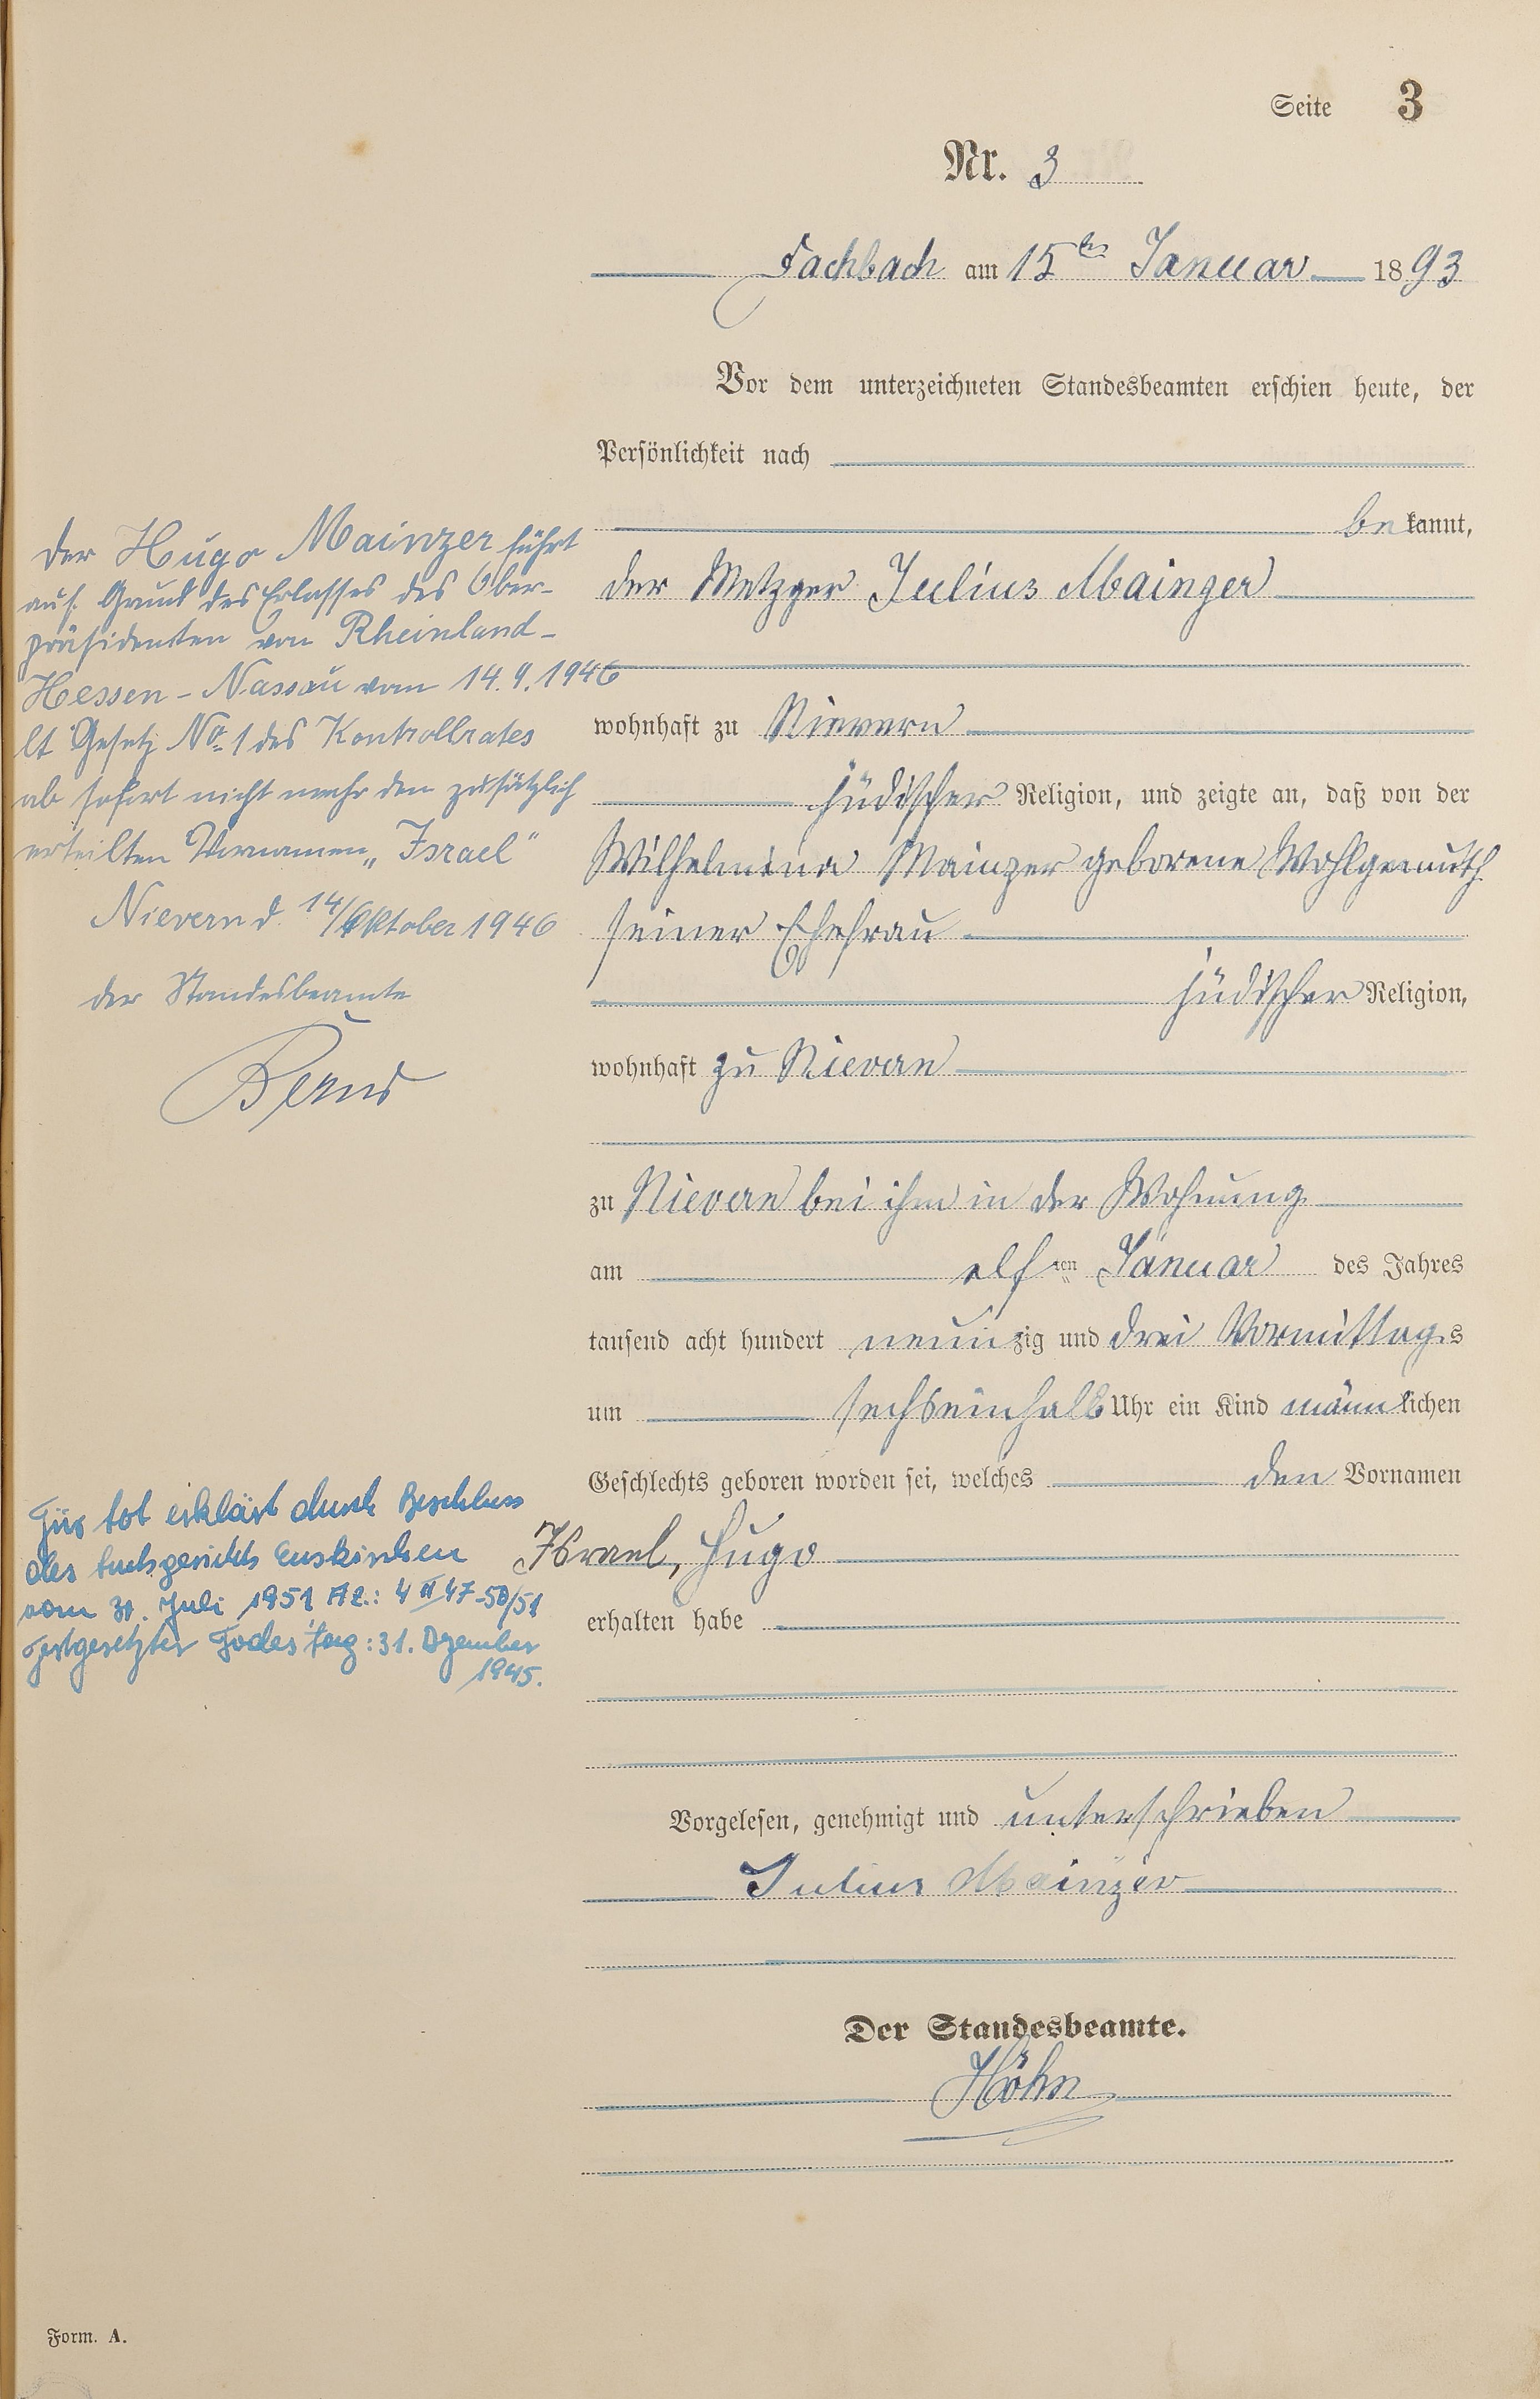 Seite 3
Nr. 3
Fachbach am 15ten Januar 1893
Vor dem unterzeichneten Standesbeamten erschien heute, der
Persönlichkeit nach
bekannt,
der Metzger Julius Mainzer
wohnhaft zu Nievern
jüdischer Religion, und zeigte an, daß von der
Wilhelmina Mainzer geborene Wohlgemuth
seiner Ehefrau
jüdischer Religion,
wohnhaft zu Nievern
zu Nievern bei ihm in der Wohnung
am elften Januar des Jahres
tausend acht hundert neunzig und drei Vormittags
um sechseinhalb Uhr ein Kind männlichen
Geschlechts geboren worden sei, welches den Vornamen
Israel, Hugo
erhalten habe
Vorgelesen, genehmigt und unterschrieben
Julius Mainzer
Der Standesbeamte.
Höhn
der Hugo Mainzer führt
auf Grund des Erlasses des Ober-
präsidenten von Rheinland-
Hessen-Nassau vom 14.9.1946
lt Gesetz No. 1 des Kontrollrates
ab sofort nicht mehr den zusätzlich
erteilten Vornamen „Israel"
Nievern d. 14/Oktober 1946
der Standesbeamte
Für tot erklärt durch Beschluss
des Amtsgerichts Euskirchen
vom 31. Juli 1951 Az.: 4 II 47-50/51
Festgesetzter Todestag: 31. Dezember
1945.
Form. A.